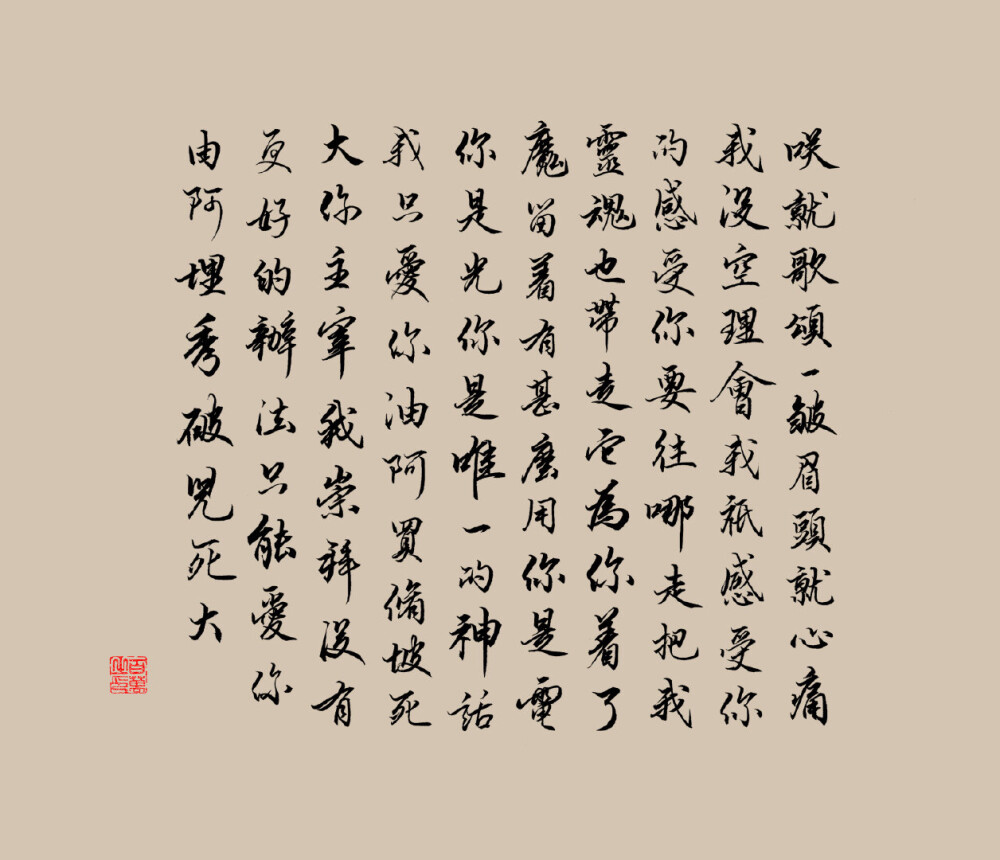 咲就歌頌一皺眉頭就心痛
我没空理會我祇感受你
的感受你要往哪走把我
靈魂也帶走它為你着了
魔留着有甚麽用你是電
你是光你是唯一的神話
我只愛你油阿買脩坡死
大你主宰我崇拜没有
更好的辦法只能愛你
由阿埋秀破兕死大